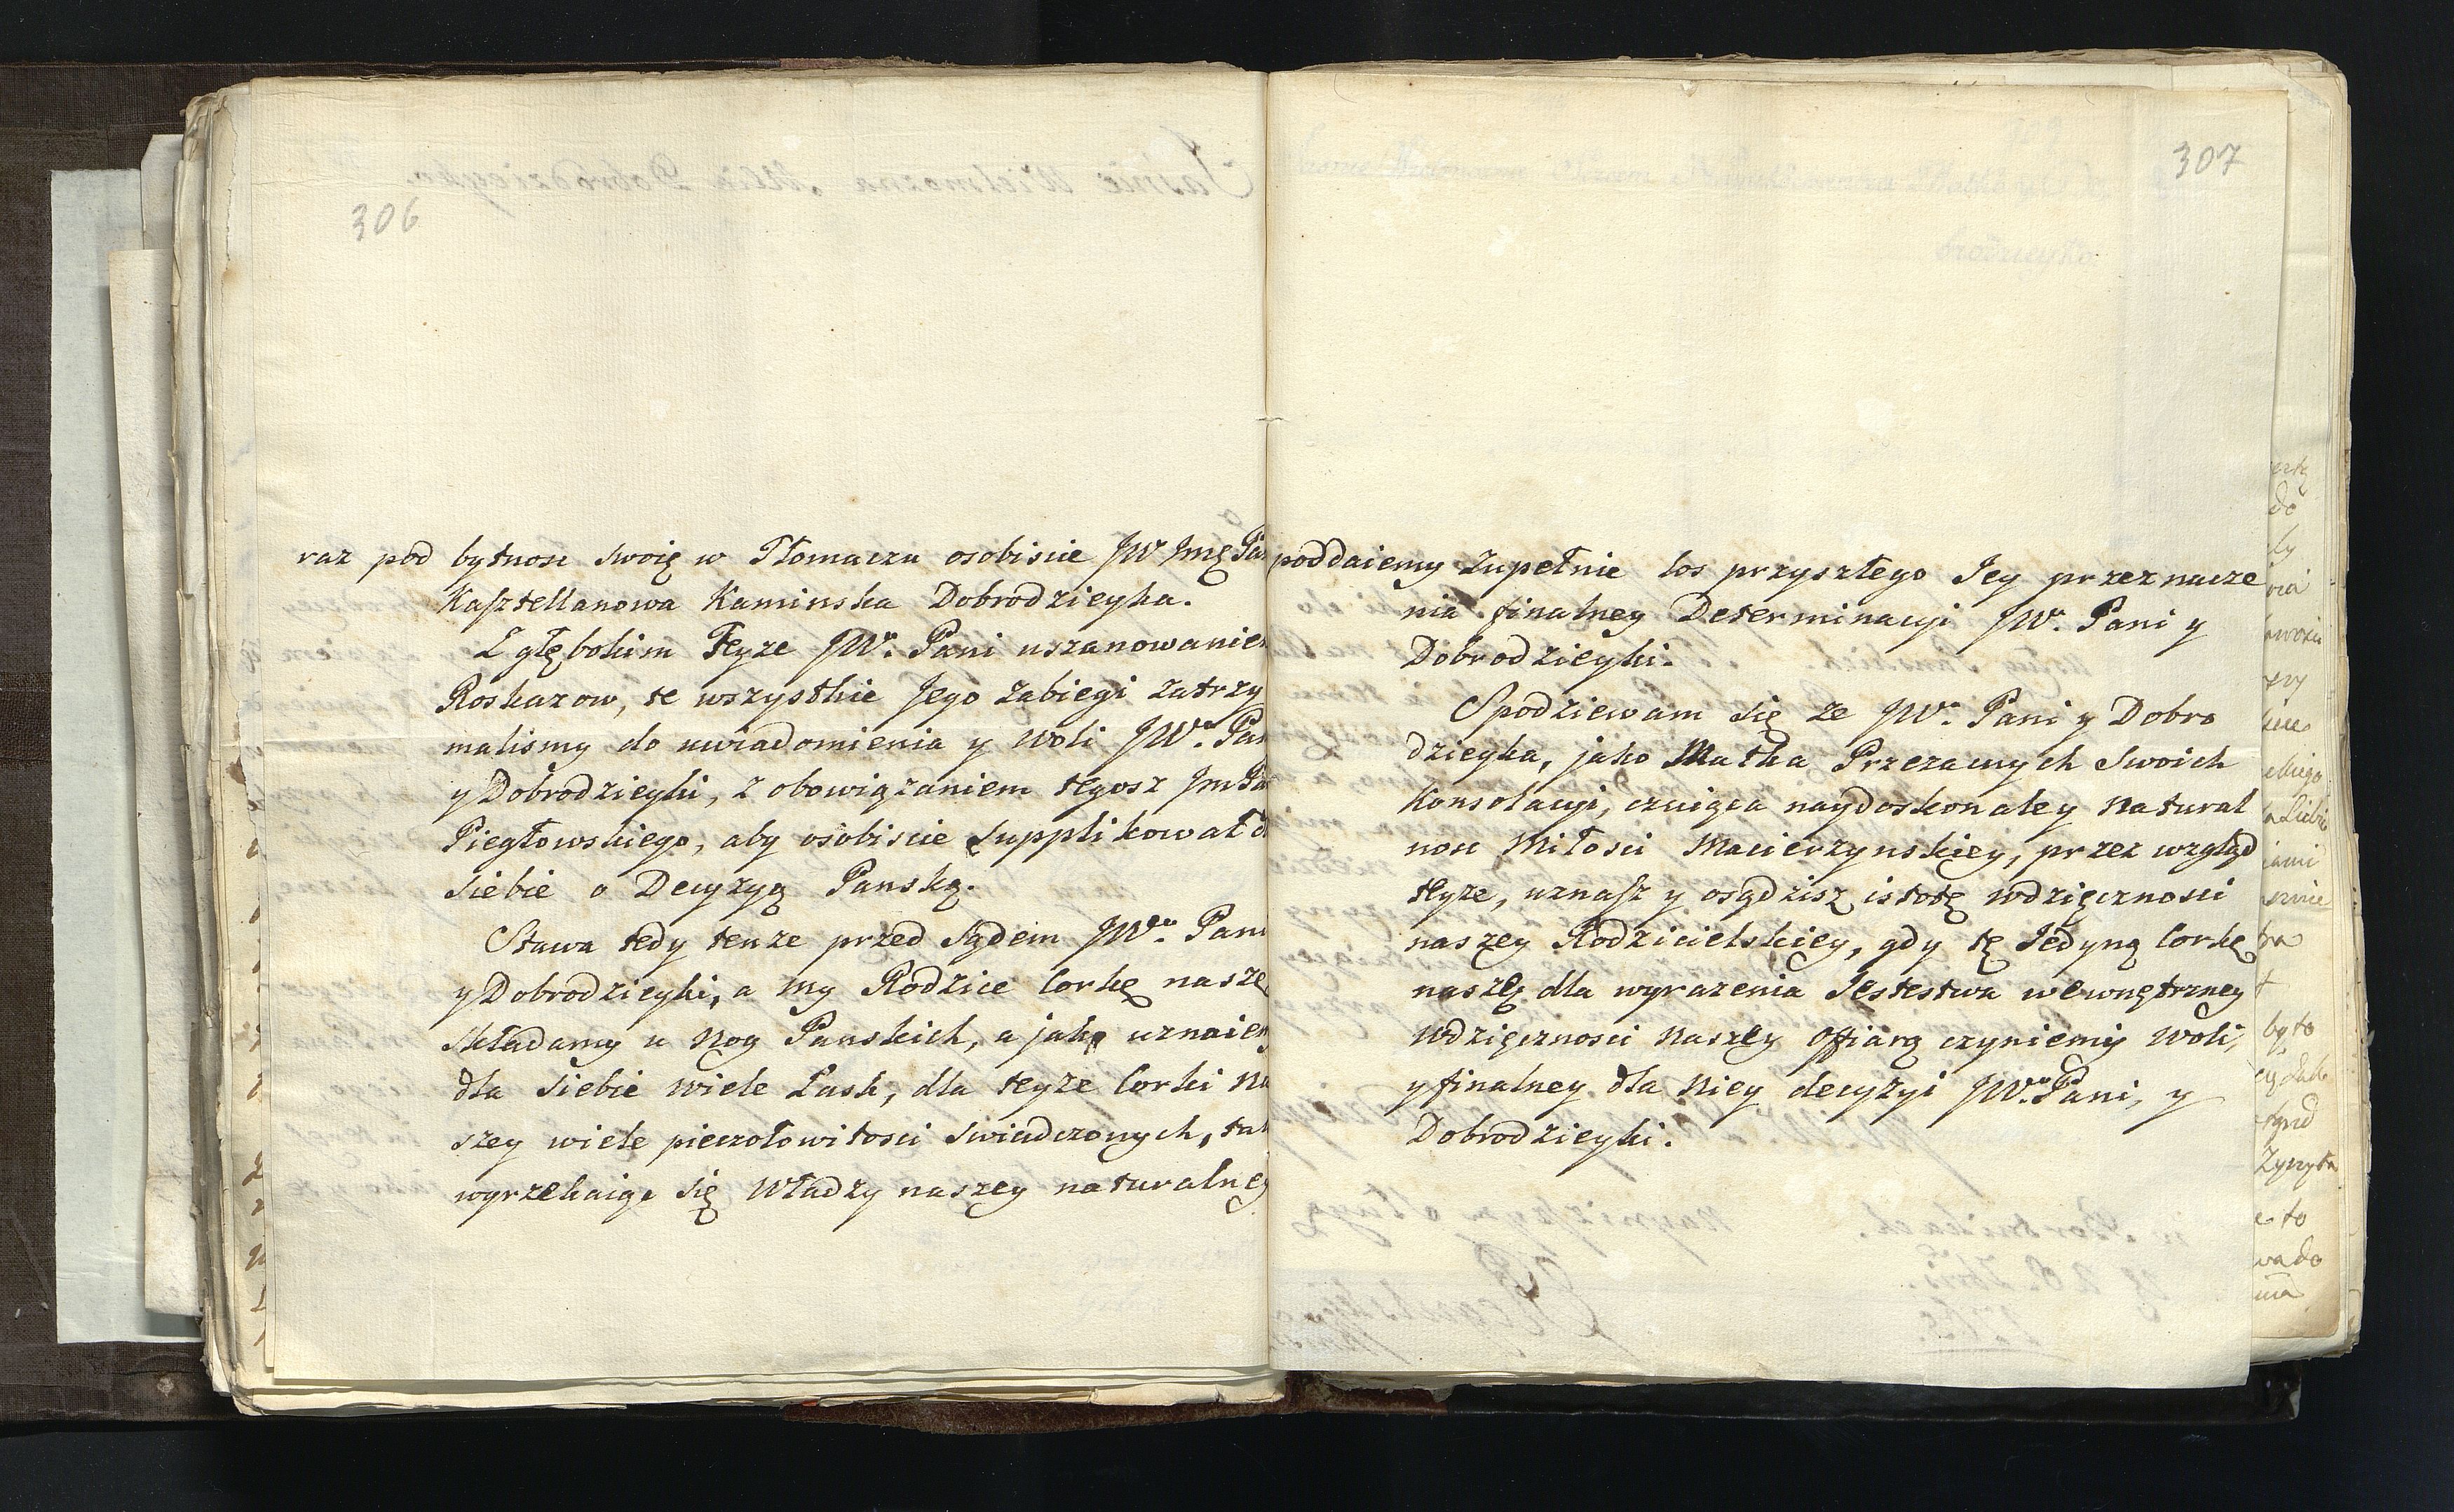 306
raz pod bytnosc swoię w Tłomaczu osobiscie JW Jmę Pa
Kasztellanowa Kaminska Dobrodzieyka.
Z głębokim Teyze JWn. Pani uszanowaniem
Roskazow, te wszystkie Jego Zabiegi zatrzy
malismy do uwiadomienia y woli JWn. Pan
y Dobrodzieyki, z obowiązaniem tegosz Jm Pa
Piegłowskiego, aby osobiscie supplikował d
siebie o Decyzyą Panską.
Stawa tedy tenze przed sądem JWn. Pani
y Dobrodzieyki, a my Rodzice Corkę naszę
składamy u Nog Panskich, a jako uznaiemy
dla siebie wiele Łask, dla teyze Corki Na
szey wiele pieczołowitosci swiadczonych, tak
wyrzekaiąc się Władzy naszey naturalney
307
poddaiemy Zupełnie los przyszłego Jey przeznacze
nia finalney Determinacyi JWn. Pani y
Dobrodzieyki.
Spodziewam się ze JWn. Pani y Dobro
dzieyka, jako Matka Przezacnych swoich
Konsolacyi, czuiąca naydoskonaley natural
nosc Miłosci Macierzynskiey, przez wzgląd
teyze, uznasz y osądzisz istotę wdzięcznosci
naszey Rodzicielskiey, gdy tę Jedyną Corkę
naszę dla wyrazenia Jestestwa wewnętrzney
Wdzięcznosci Naszey Offiarą czyniemy Woli,
y finalney dla Niey decyzyi JWn. Pani, y
Dobrodzieyki.